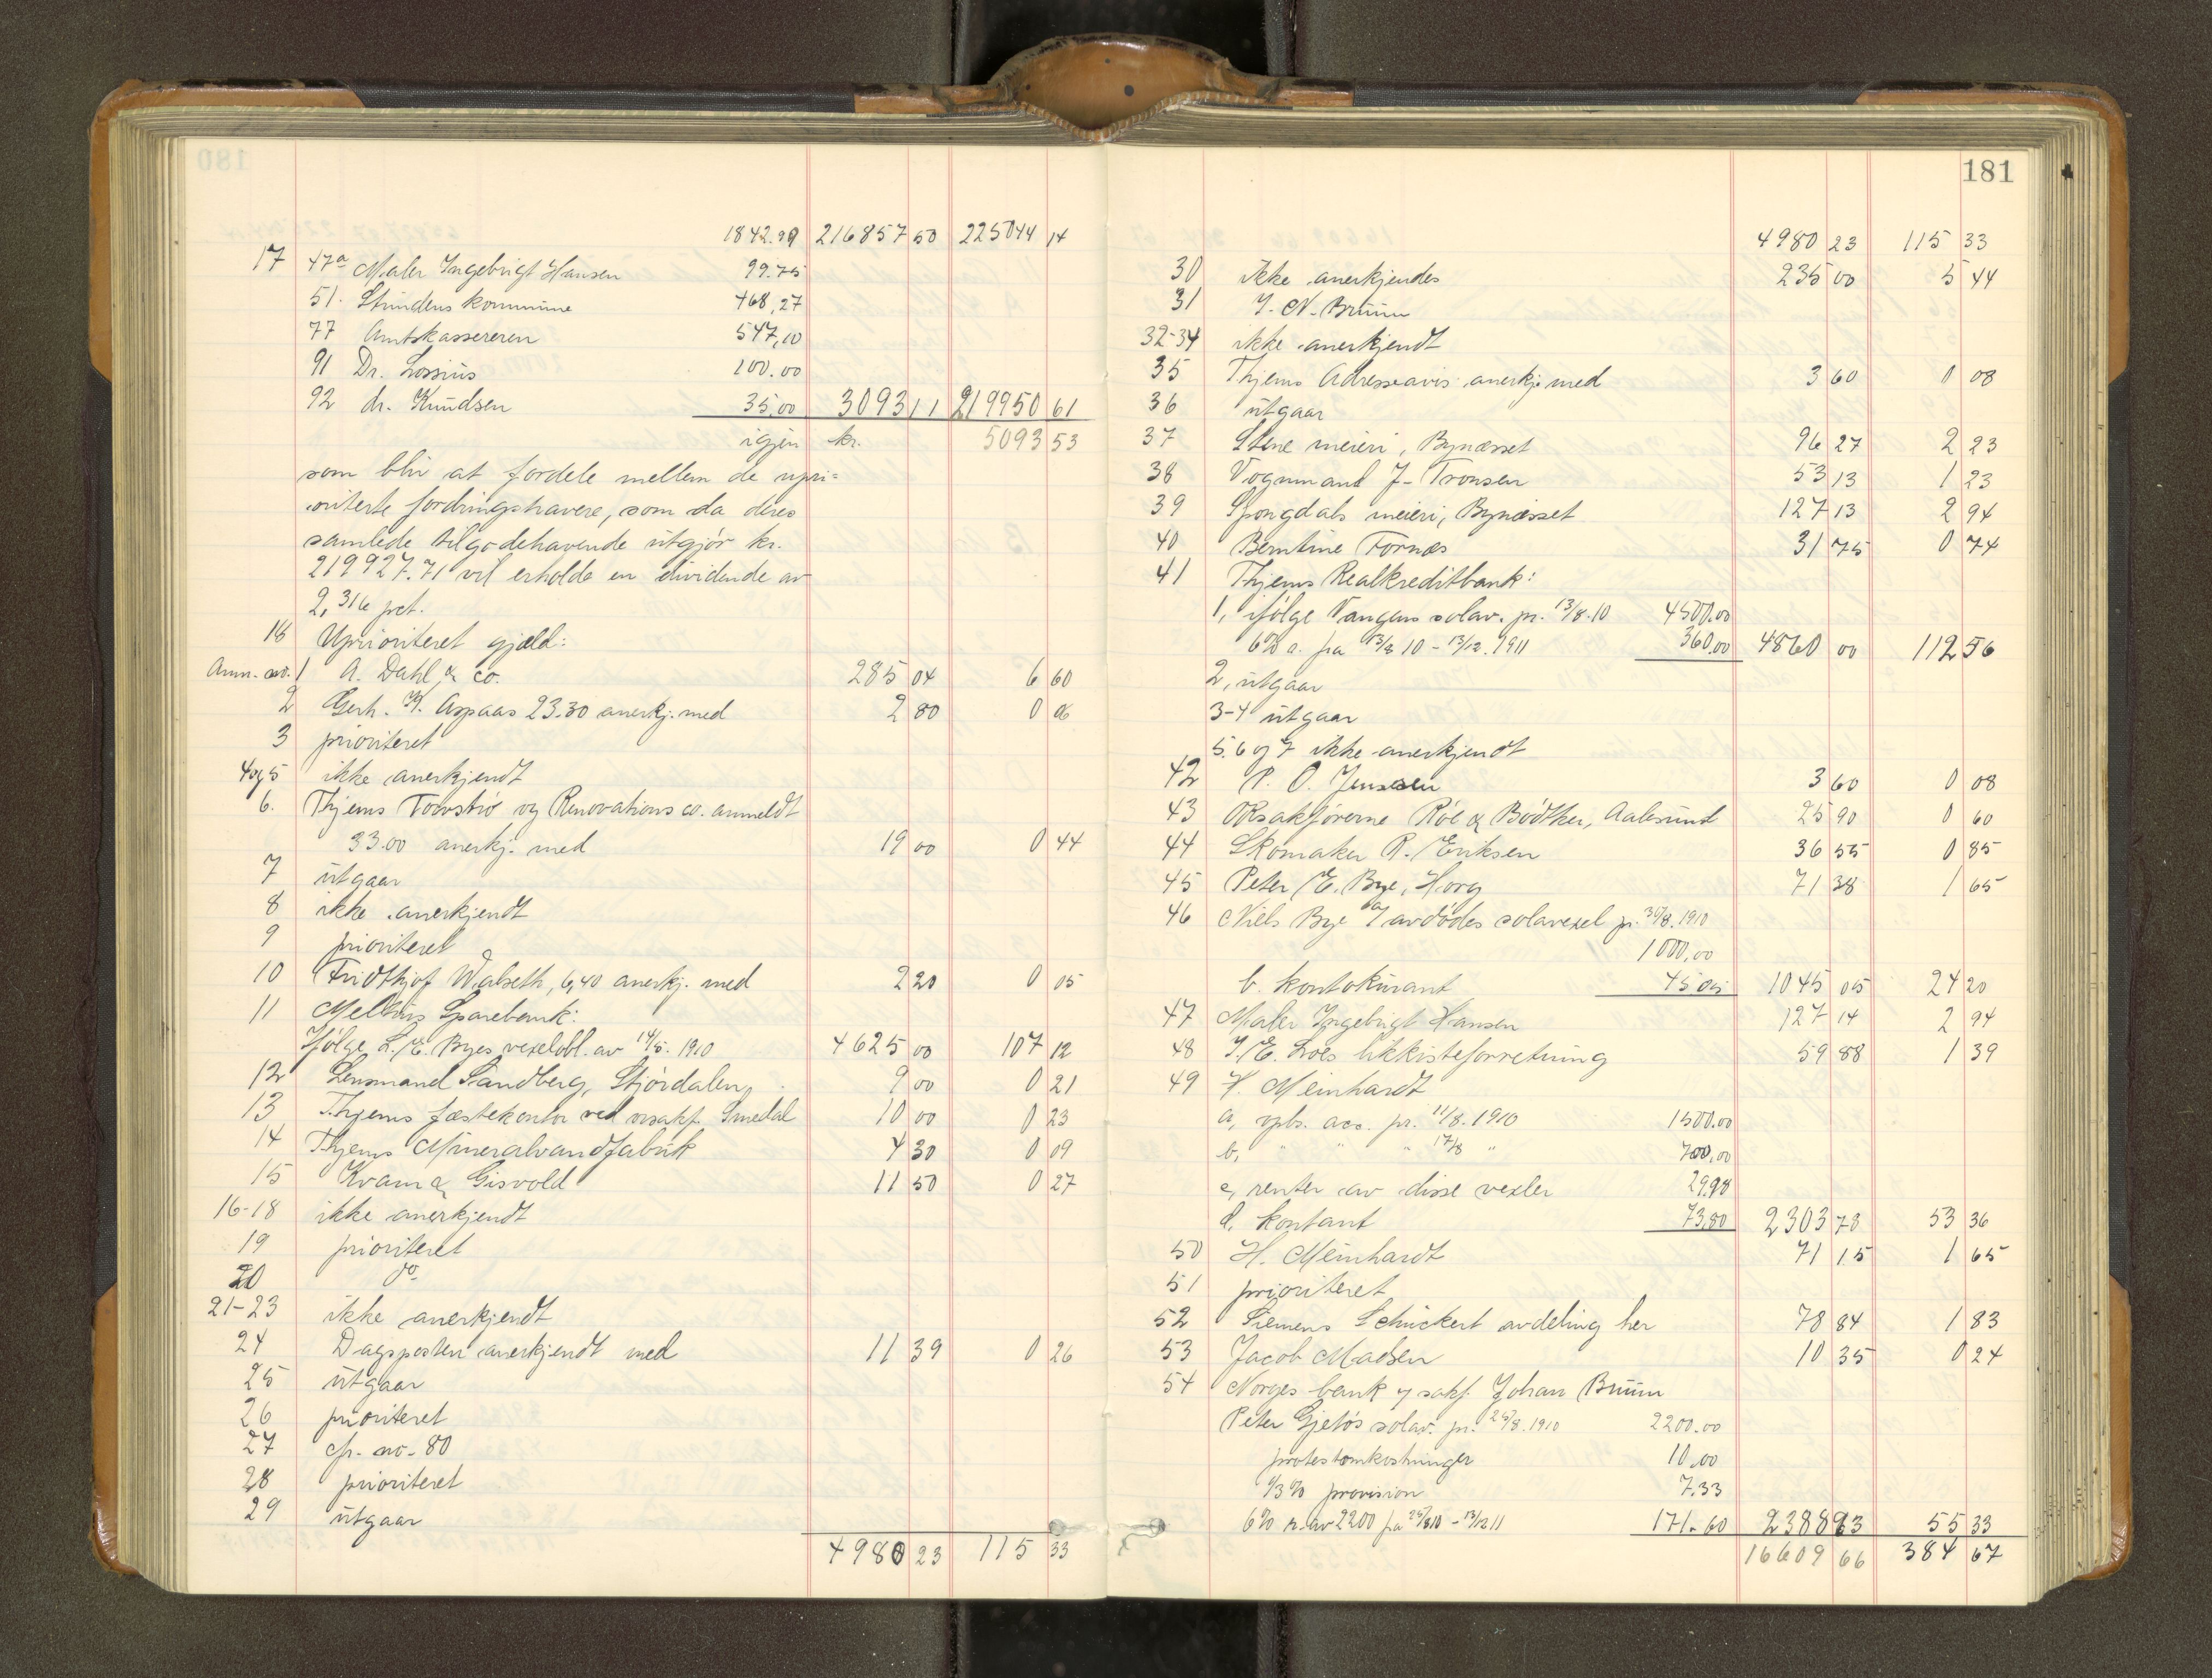 180
1842.99 216857 50 225044 14
17 47a Maler Ingebrigt Hansen 99.75
51. Strindens kommune 468,27
77 Amtskassereren 547,10
91 Dr. Lossius 100.00
92 dr. Knudsen 35,00 3093 11 219950 61
igjen kr. 5093 53
som blir at fordele mellem de upri=
oriterte fordringshavere, som da deres
samlede tilgodehavende utgjør kr.
219927.71 vil erholde en dividende av
2,316 pct.
18 Uprioriteret gjæld:
Anm. no. 1 A. Dahl & co. 285 04 6 60
2 Gerh. K. Aspaas 23.30 anerkj. med 2 80 0 06
3 prioriteret
4 og 5 ikke anerkjendt
6. Thjems Torvstrø og Renovations co. anmeldt
33.00 anerkj. med 19 00 0 44
7 utgaar
8 ikke anerkjendt
9 prioriteret
10 Fridthjof Walseth, 6,40 anerkj. med 2 20 0 05
11 Melhus Sparebank:
Ifølge L. E. Byes vexelobl. av 14/5. 1910 4625 00 107 12
12 Lensmand Sandberg, Stjørdalen, 9 00 0 21
13 Thjems fæstekontor ved orsakf. Smedal 10 00 0 23
14 Thjems Mineralvandfabrik 4 30 0 09
15 Kvam & Gisvold 11 50 0 27
16-18 ikke anerkjendt
19 prioriteret
20 do
21-23 ikke anerkjendt
24 Dagsposten anerkjendt med 11 39 0 26
25 utgaar
26 prioriteret
27 cfr. no. 80
28 prioriteret
29 utgaar
4980 23 115 33
181
4980 23 115 33
30 ikke anerkjendes 235 00 5 44
31 J. N. Bruun
32-34 ikke anerkjendt
35 Thjems Adresseavis anerkj. med 3 60 0 08
36 utgaar
37 Stene meieri, Bynæsset 96 27 2 23
38 Vognmand J. Tronsen 53 13 1 23
39 Spongdals meieri, Bynæsset 127 13 2 94
40 Berntine Fornæs 31 75 0 74
41 Thjems Realkreditbank:
1, ifølge Vangens solav. pr. 13/8.10 4500.00
6% r. fra 13/8 10 - 13/12. 1911 360.00 4860 00 112 56
2, utgaar
3-4 utgaar
5. 6 og 7 ikke anerkjendt
42 P. O. Jenssen 3 60 0 08
43 ORsakførerne Røe & Bødtker, Aalesund 25 90 0 60
44 Skomaker R. Eriksen 36 55 0 85
45 Peter E. Bye, Horg 71 38 1 65
46 Niels Bye a/ avdødes solavexel pr. 30/8. 1910
1000.00
b. kontokurant 45 05 1045 05 24 20
47 Maler Ingebrigt Hansen 127 14 2 94
48 J. E. Loes likkisteforretning 59 88 1 39
49 H. Meinhardt
a, vpls. acc. pr. 11/8. 1910 1500.00
b, " " " 17/8 " 700,00
c, renter av disse vexler 29,98
d. kontant 73,80 2303 78 53 36
50 H. Meinhardt 71 15 1 65
51 prioriteret
52 Siemens Schuckert avdeling her 78 84 1 83
53 Jacob Madsen 10 35 0 24
54 Norges bank v sakf. Johan Bruun
Peter Gjetøs solav. pr. 25/8. 1910 2200.00
protestomkostninger 10.00
1/3 % provision 7.33
6% r. av 2200 fra 25/8 10 - 13/12 11 171.60 2388 93 55 33
16609 66 384 67